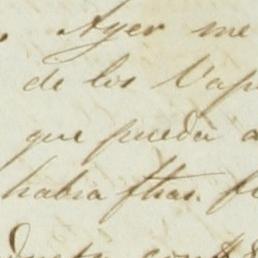 Ayer me
de los Vap
que pueda a
habra fhas. f